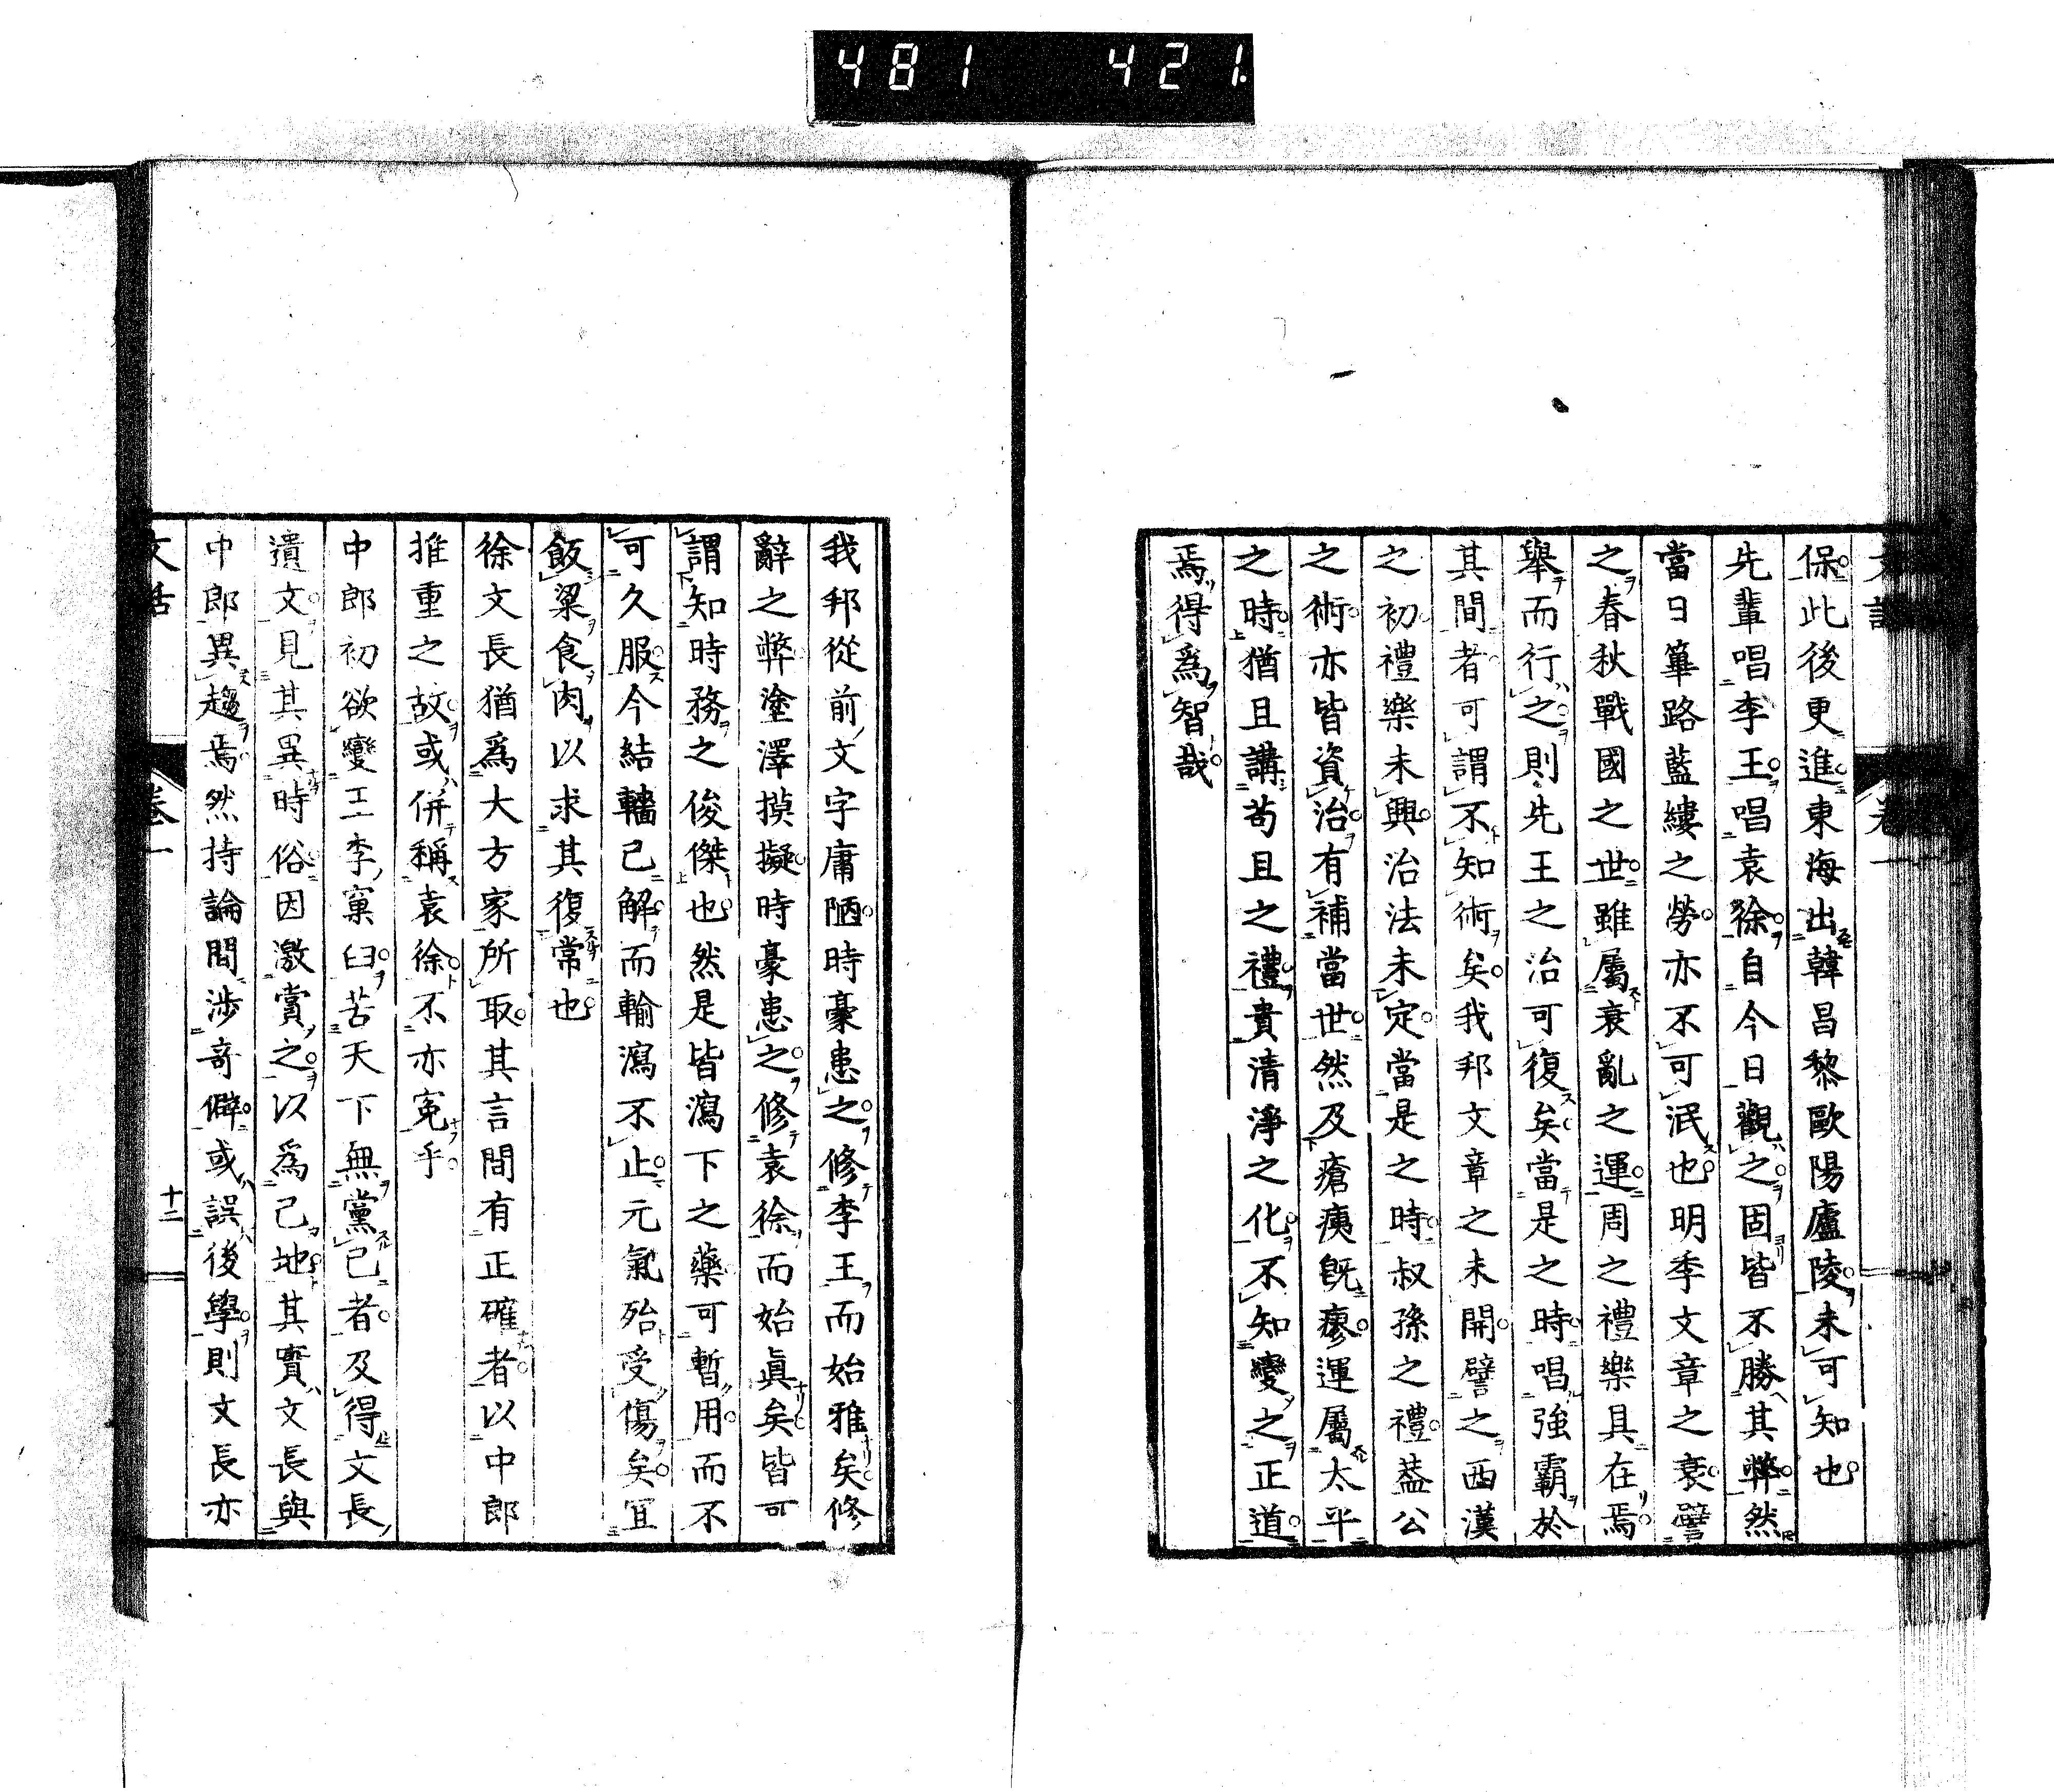 481 421
保此後更進東海出韓昌黎歐陽廬陵未可知也
先輩唱李王唱袁徐自今日觀之固皆不勝其弊然
當日篳路藍縷之勞亦不可泯也明季文章之衰譬
之春秋戰國之世雖屬衰亂之運周之禮樂具在焉
舉而行之則先王之治可復矣當是之時唱強霸於
其間者可謂不知術矣我邦文章之未開譬之西漢
之初禮樂未興治法未定當是之時叔孫之禮蓋公
之術亦皆資治有補當世然及瘡痍既瘳運屬太平
之時猶且講苟且之禮貴清淨之化不知變之正道
焉得爲智哉
我邦從前文字庸陋時豪患之修李王而始雅矣修
辭之弊塗澤摸擬時豪患之修袁徐而始眞矣皆可
謂知時務之俊傑也然是皆瀉下之藥可暫用而不
可久服今結轖已解而輸瀉不止元氣殆受傷矣宜
飯粱食肉以求其復常也
徐文長猶爲大方家所取其言間有正確者以中郎
推重之故或併稱袁徐不亦寃乎
中郎初欲變王李窠臼苦天下無黨己者及得文長
遺文見其異時俗因激賞之以爲己地其實文長與
中郎異趨焉然持論間涉奇僻或誤後學則文長亦
文話 卷一 十二